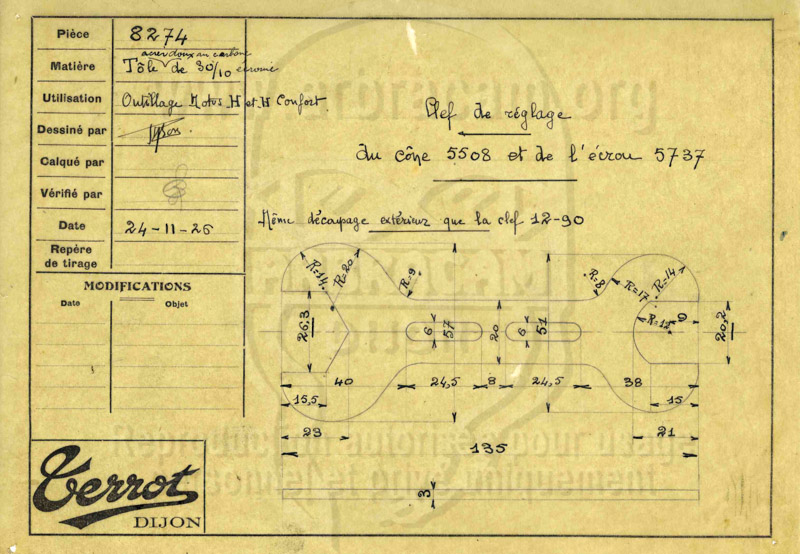 Pièce 8274
acier doux au carbone
Matière Tôle de 30/10 écrouie
Utilisation Outillage Motos H et H Confort
Dessiné par
Calqué par
Vérifié par
Date 24-11-26
Repère
de tirage
MODIFICATIONS
Date Objet
Clef de réglage
du cône 5508 et de l'écrou 5737
Même découpage extérieur que la clef 12-90
R=14 R=20 R=9 R=8 R=17 R=14
26,3 6 57 20 6 51 R=12 9 20,2
40 24,5 8 24,5 38
15,5 15
23 21
135
3
Terrot
DIJON
Reproduction autorisée pour usage